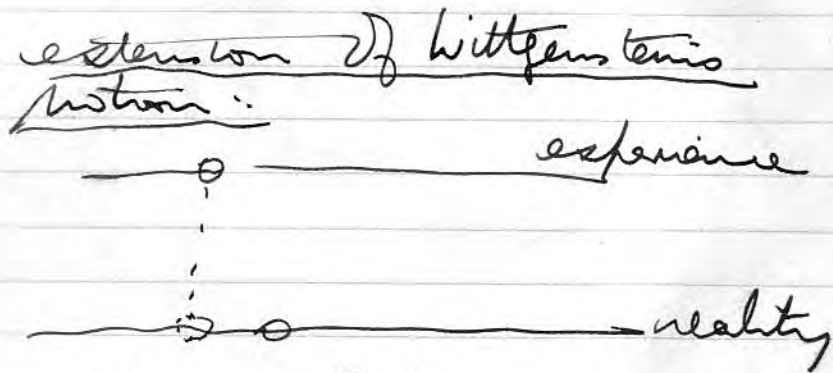 extension of Wittgenstein's
Notion:
experience
reality